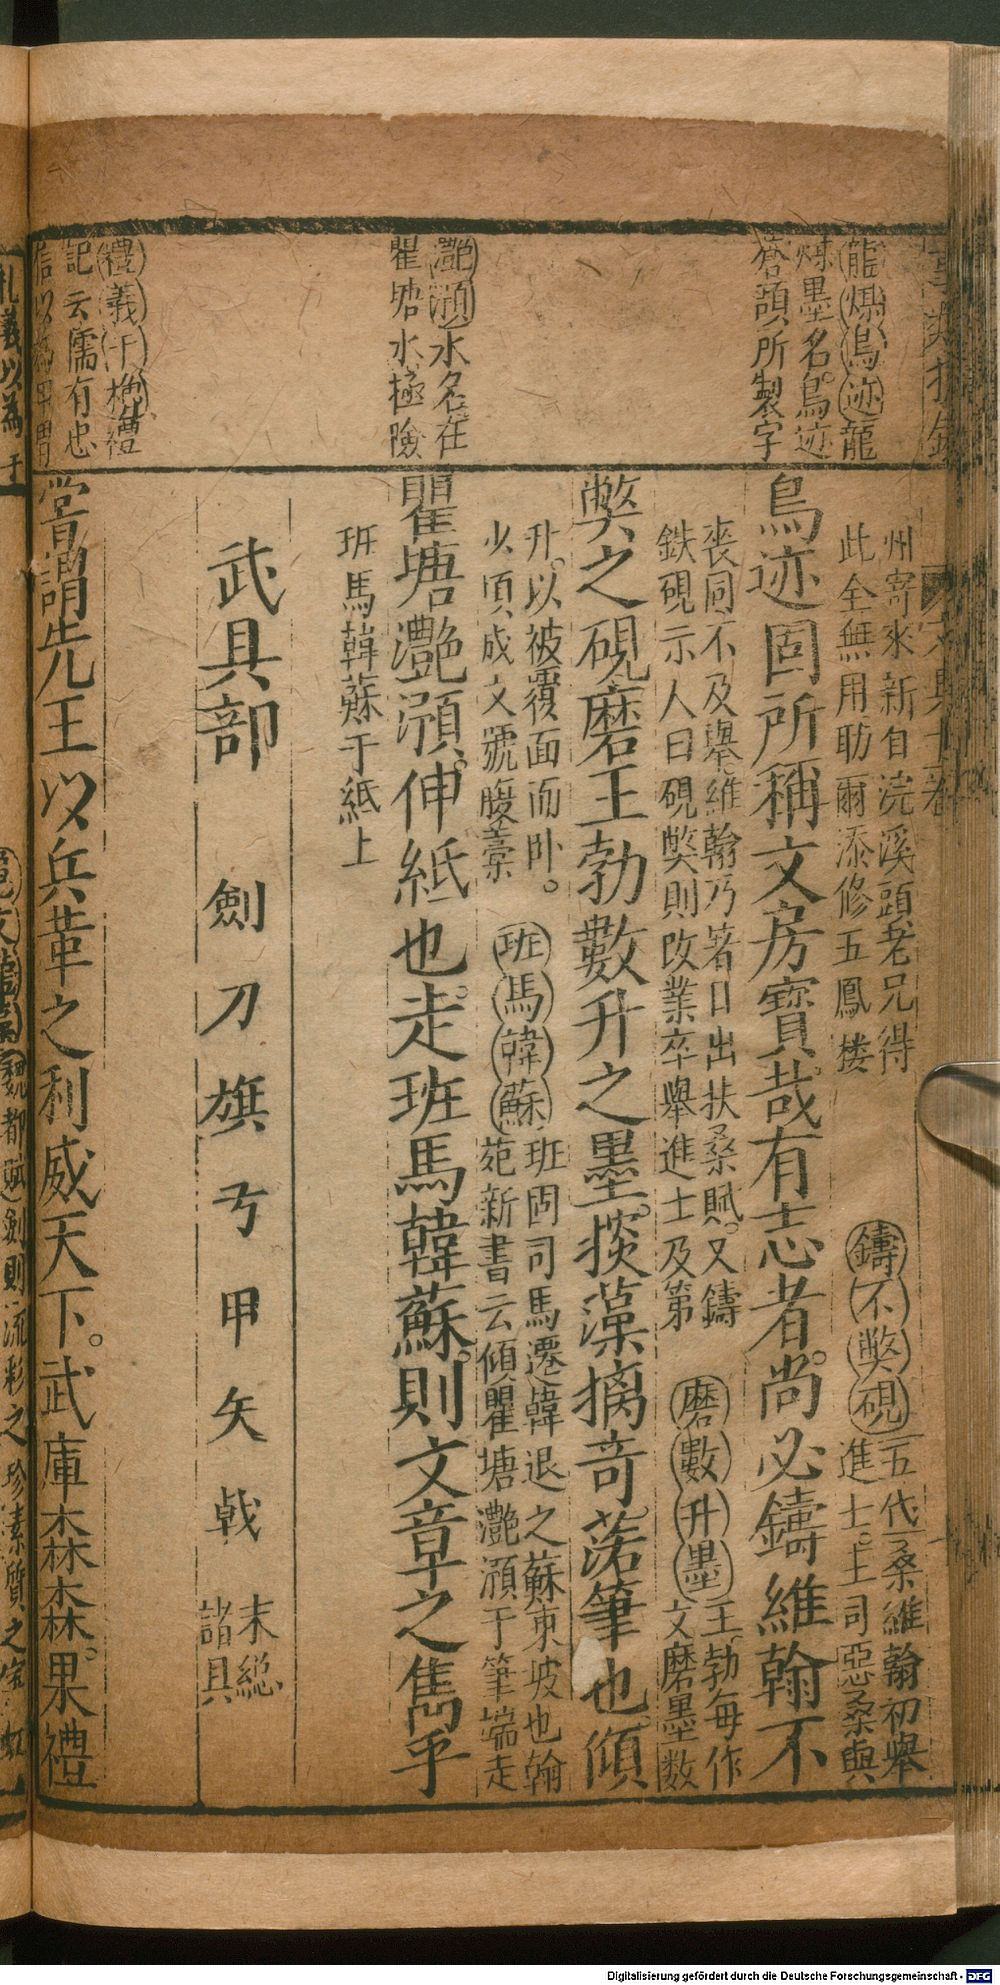 龍煤鳥迹龍
煤墨名鳥迹
蒼頡所製字
灔澦水名在
瞿塘水極險
禮義干櫓禮
記云儒有忠
信以為甲冑
州寄來新自浣溪頭老兄得
此全無用助爾添修五鳳楼
鑄不獘硯
五代桑維翰初舉
進士主司惡桑與
鳥迹固所稱文房寶哉有志者尚必鑄維翰不
丧同不及舉維翰乃著日出扶桑賦又鑄
鉄硯示人曰硯獘則改業卒舉進士及第
磨數升墨
王勃每作
文磨墨数
獘之硯磨王勃數升之墨掞藻摛奇落筆也傾
升以被覆面而卧
少頃成文號腹藁
班馬韓蘇
班固司馬遷韓退之蘇東坡也翰
苑新書云傾瞿塘灔澦于筆端走
瞿塘灔澦伸紙也走班馬韓蘇則文章之雋乎
班馬韓蘇于紙上
武具部 劍 刀 旗 弓 甲 矢 戟 末総諸具
嘗謂先王以兵革之利威天下武庫森森果禮
Digitalisierung gefördert durch die Deutsche Forschungsgemeinschaft - DFG